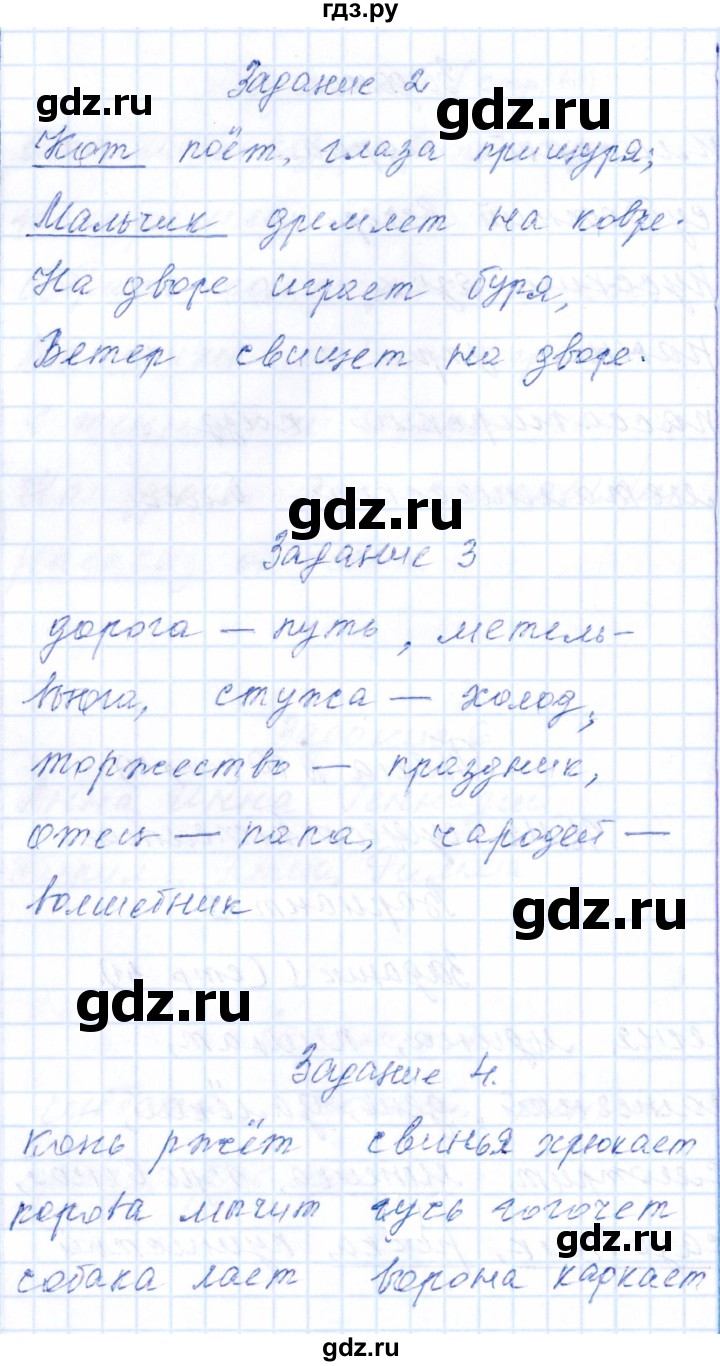 гдз.ру
Задание 2
gdz.ru
gdz.ru
Кот поёт, глаза прищуря;
Мальчик дремлет на ковре.
На дворе играет буря,
Ветер свищет на дворе.
gdz.ru
Задание 3
дорога — путь, метель-
вьюга, стужа — холод,
торжество — праздник,
отец — папа, чародей —
волшебник
gdz.ru
gdz.ru
Задание 4.
конь ржёт свинья хрюкает
корова мычит гусь гогочет
gdz.ru
собака лает ворона каркает
gdz.ru